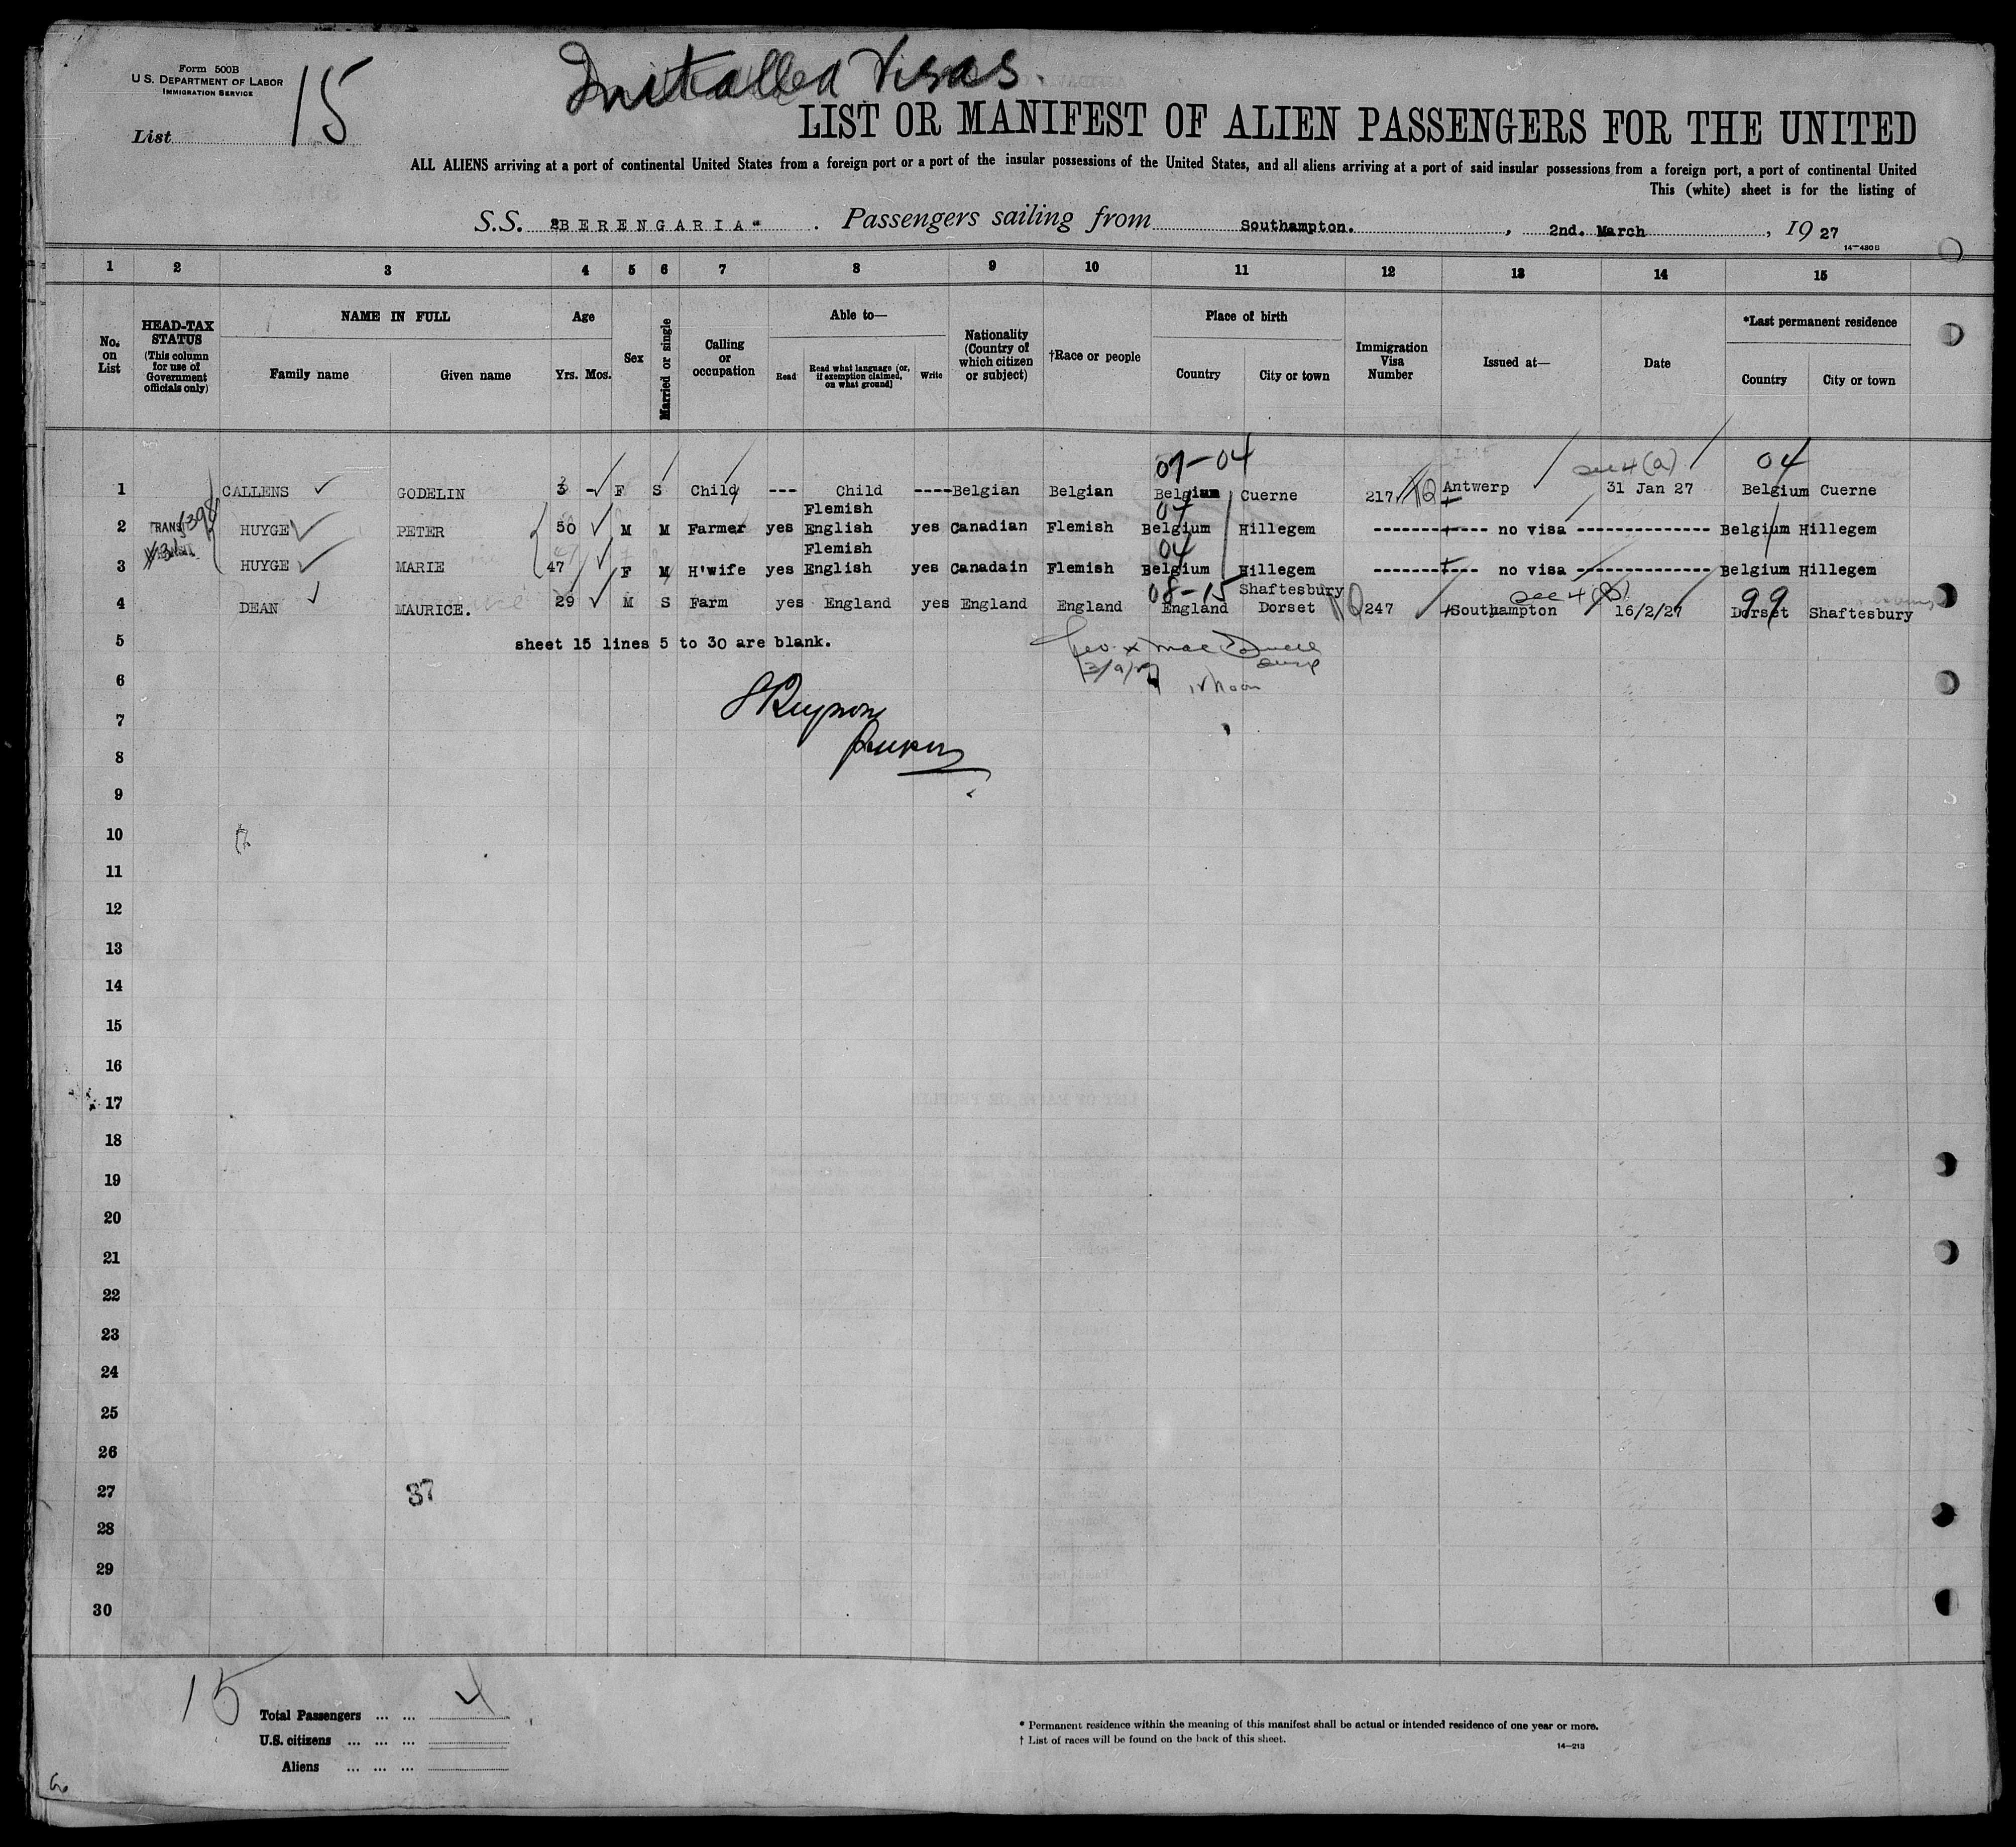 Form 500B
U. S. DEPARTMENT OF LABOR
IMMIGRATION SERVICE
List 15
Visas
LIST OR MANIFEST OF ALIEN PASSENGERS FOR THE UNITED
ALL ALIENS arriving at a port of continental United States from a foreign port or a port of the insular possessions of the United States, and all aliens arriving at a port of said insular possessions from a foreign port, a port of continental United
This (white) sheet is for the listing of
S.S. "BERENGARIA" . Passengers sailing from Southampton. , 2nd. March , 19 27
14-430B
1 2 3 4 5 6 7 8 9 10 11 12 13 14 15
No. on List
HEAD-TAX STATUS (This column for use of Government officials only)
NAME IN FULL
Family name Given name
Age
Yrs. Mos.
Sex
Married or single
Calling or occupation
Able to—
Read Read what language (or, if exemption claimed, on what ground) Write
Nationality (Country of which citizen or subject)
†Race or people
Place of birth
Country City or town
Immigration Visa Number
Issued at—
Date
*Last permanent residence
Country City or town
07-04 see 4 (a) 04
1 CALLENS GODELIN 3 - F S Child --- Child ---- Belgian Belgian Belgium Cuerne 217 NQ Antwerp 31 Jan 27 Belgium Cuerne
Flemish 04
2 TRANS HUYGE PETER 50 M M Farmer yes English yes Canadian Flemish Belgium Hillegem -------- no visa -------------- Belgium Hillegem
Flemish 04
3 HUYGE MARIE 47 F M H'wife yes English yes Canadain Flemish Belgium Hillegem -------- no visa -------------- Belgium Hillegem
08-15 Shaftesbury see 4 99
4 DEAN MAURICE. 29 M S Farm yes England yes England England England Dorset NQ 247 Southampton 16/2/27 Dorset Shaftesbury
5 sheet 15 lines 5 to 30 are blank.
3/9/27
6
7
8
9
10
11
12
13
14
15
16
17
18
19
20
21
22
23
24
25
26
27 37
28
29
30
15
Total Passengers ... ... 4
U.S. citizens ... ... ...
Aliens ... ... ...
* Permanent residence within the meaning of this manifest shall be actual or intended residence of one year or more.
† List of races will be found on the back of this sheet.
14-213